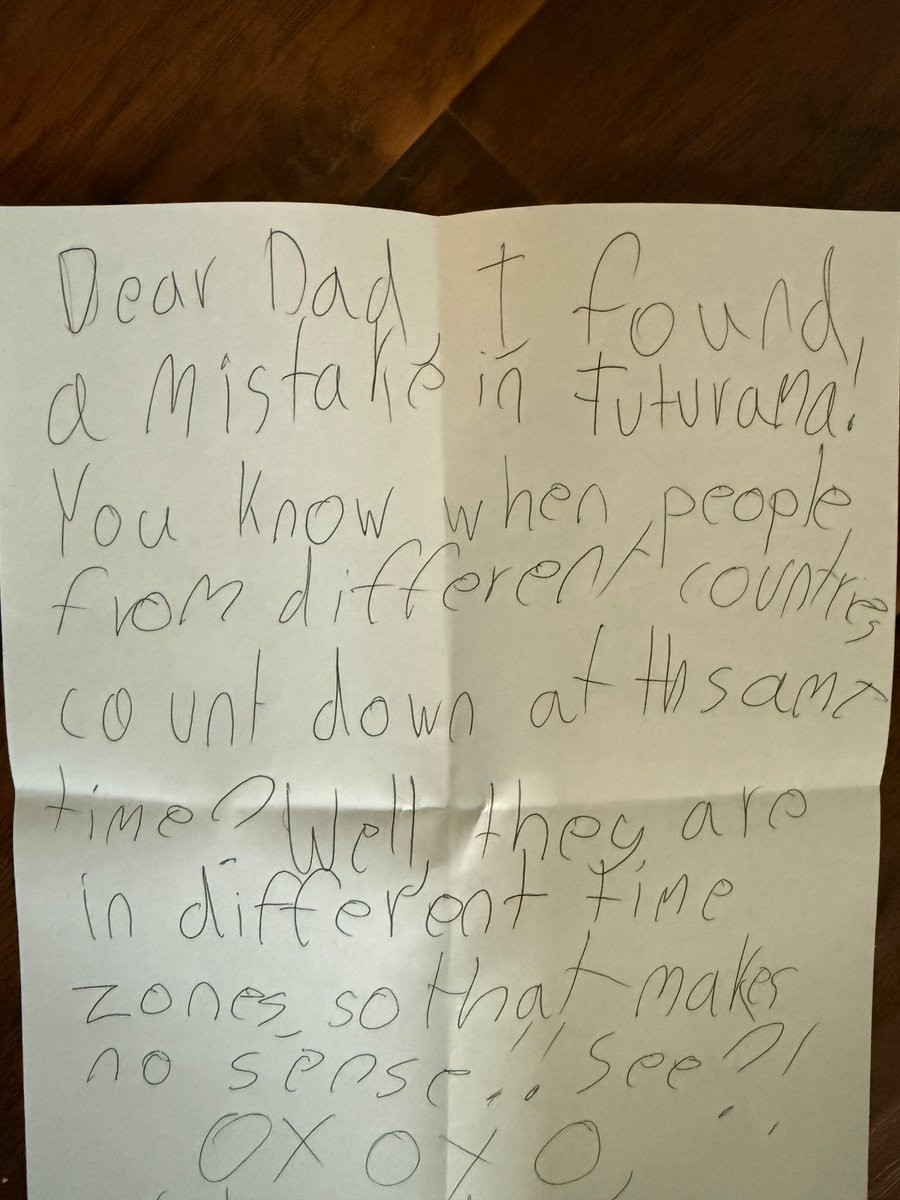 Dear Dad, I found
a mistake in Futurama!
You know when people
from different countries
count down at th same
time? Well, they are
in different time
zones, so that makes
no sense!! See?!
OXOXO,